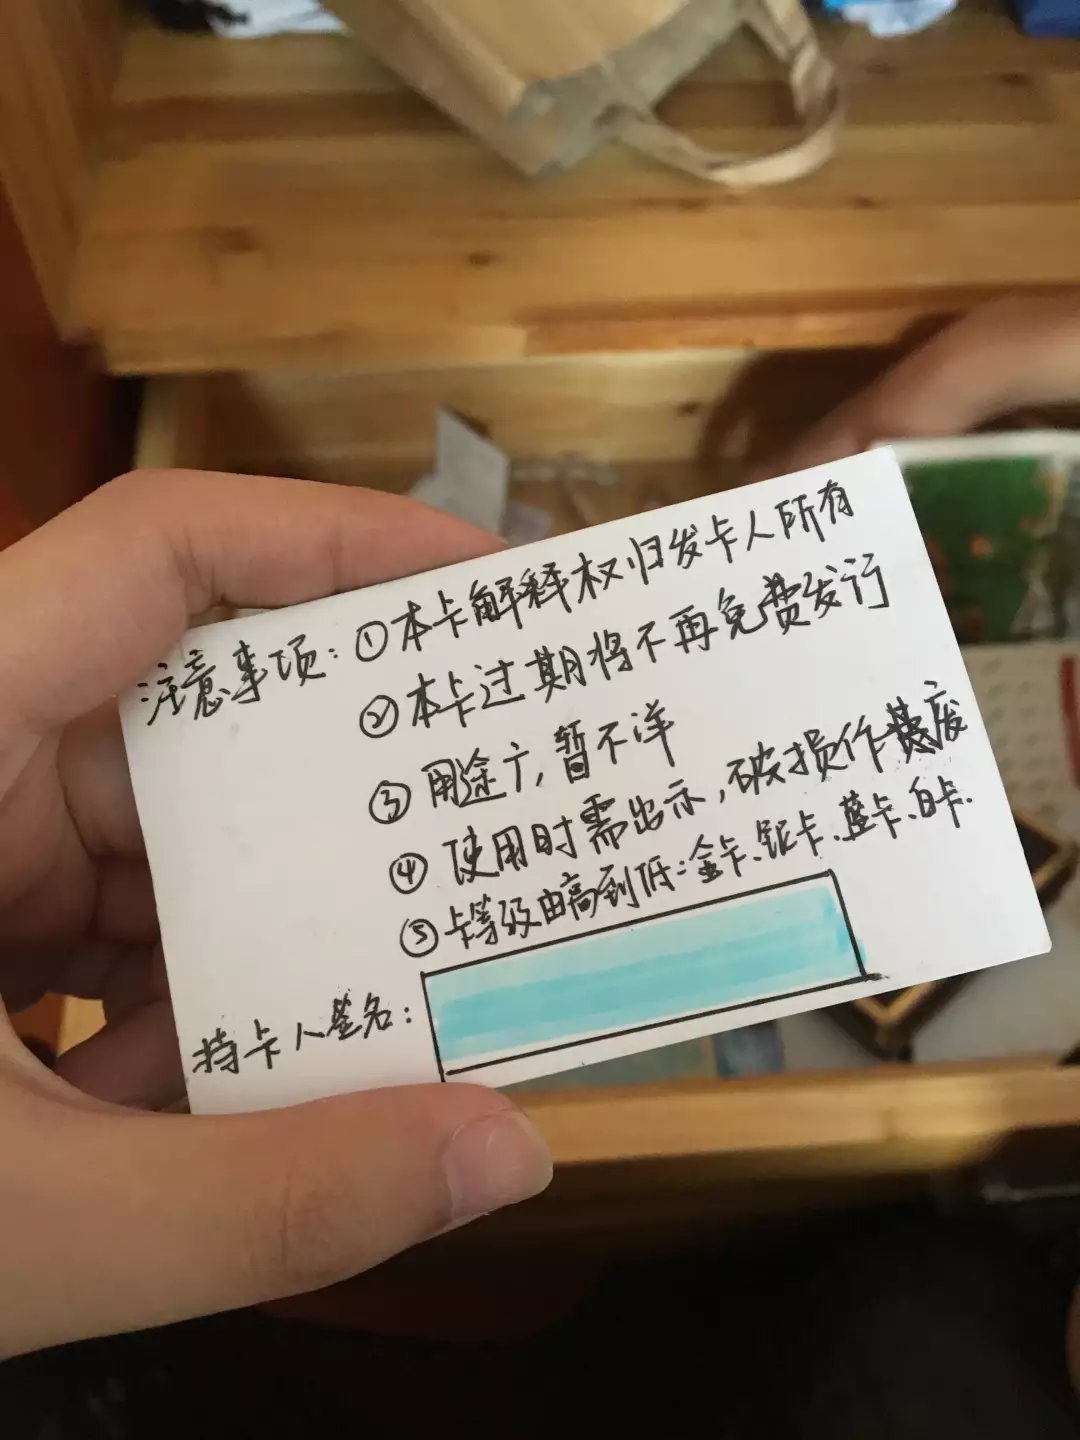 注意事项：①本卡解释权归发卡人所有
②本卡过期将不再免费发订
③用途广，暂不详
④使用时需出示，破损作废
⑤卡等级由高到低：金卡、银卡、蓝卡、白卡.
持卡人签名：